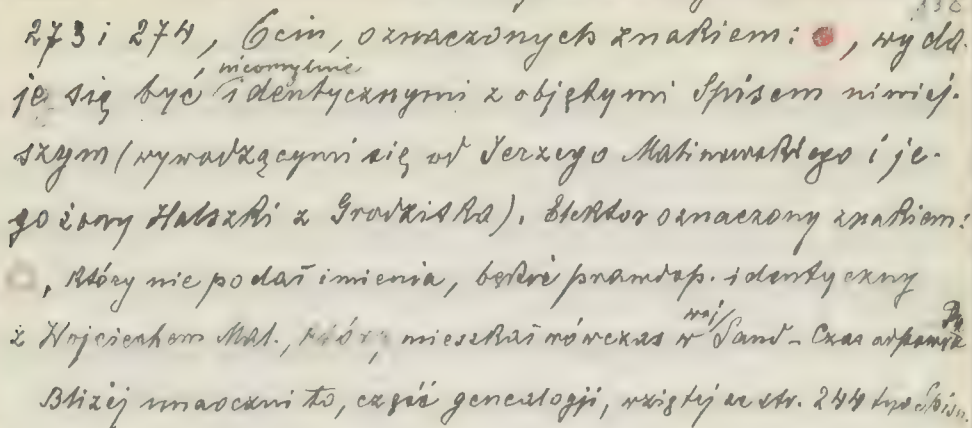 273 i 274, 6ciu, oznaczonych znakiem: , wyda-
nieomylnie
je się być identycznymi z objętymi Spisem niniej-
szym (wywodzącymi się od Jerzego Malinowskiego i je-
go żony Halszki z Grodziska). Elektor oznaczony znakiem:
, który nie podał imienia, będzie prawdop. identyczny
z Wojciechem Mal., który mieszkał wówczas w woj. Sand - Czas
Bliżej unaoczni to, część genealogji, wziętej ze str. 244 tego Spisu.